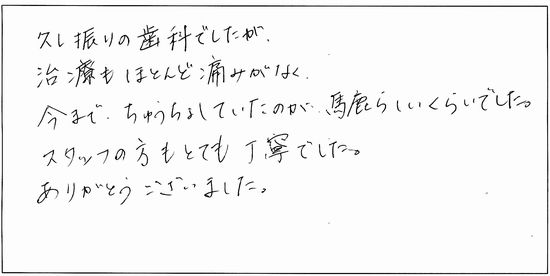 久し振りの歯科でしたが、
治療もほとんど痛みがなく、
今まで、ちゅうちょしていたのが、馬鹿らしいくらいでした。
スタッフの方もとても丁寧でした。
ありがとうございました。